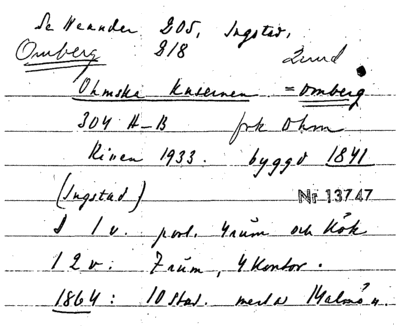 Se Neander 205, Ingstad,
Omberg 218 Lund
Ohmska Kasernen = Omberg
304 A-B frk Ohm
Riven 1933. byggd 1841
(Ingstad) Nr 13747
I 1 v. port. 4 rum och Kök
1 2 v: 7 rum, 4 Kontor.
1864: 10 stad.